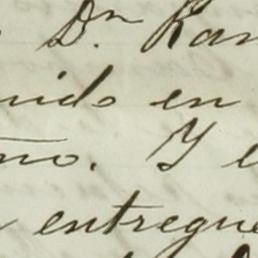 Dn Ram
nido en
no. Y e
entregue